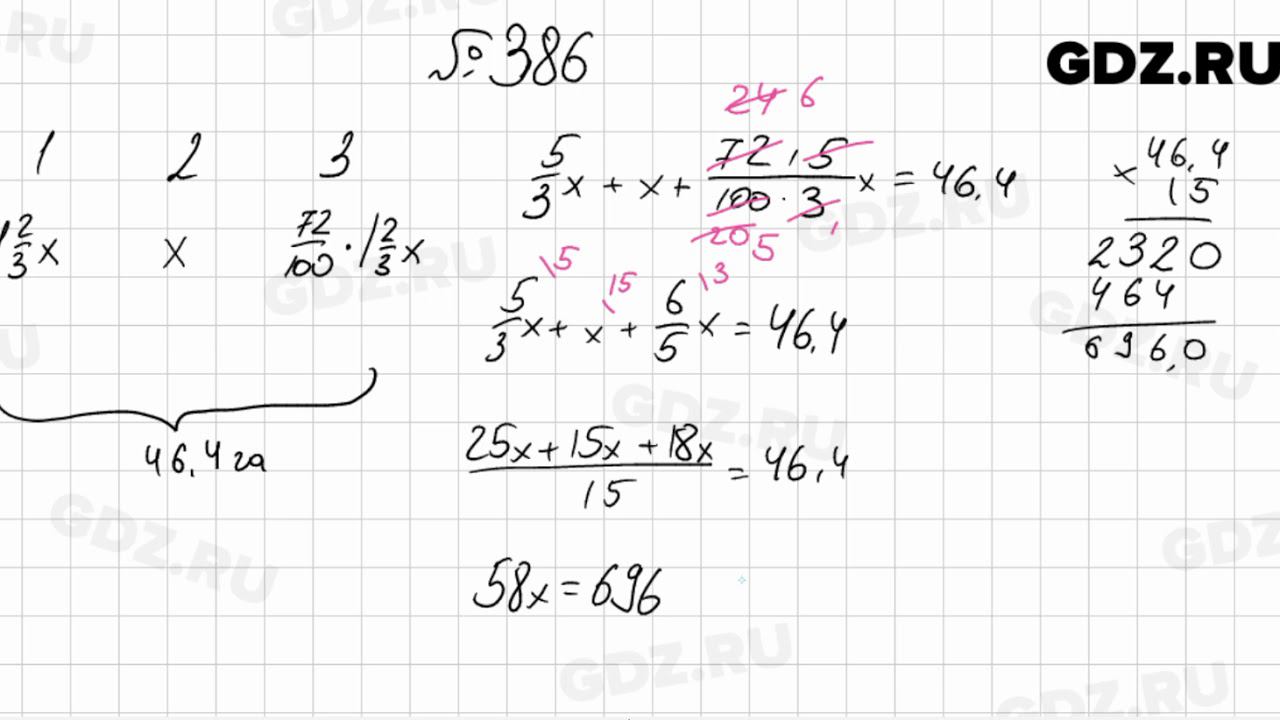 № 386
GDZ.RU
1 2 3
1 2/3 x x 72/100 · 1 2/3 x
46,4 га
24 6
5/3 x + x + 72 · 5 / 100 · 3 x = 46,4
20 5 1
\5 \15 \3
5/3 x + x + 6/5 x = 46,4
25x + 15x + 18x / 15 = 46,4
58x = 696
× 46,4
15
2320
464
696,0